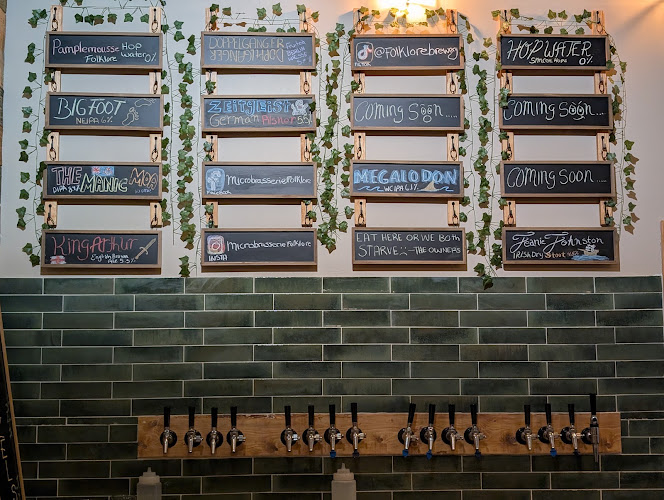 Pamplemousse Hop
Folklore Water 0%
BIGFOOT
NEIPA 6%
THE MANIC MOA
DIPA
KING ARTHUR
English Brown
Ale 5.5%
DOPPELGANGER
ZEITGEIST
German Pilsner 5%
Microbrasserie Folklore
Facebook
Microbrasserie Folklore
INSTA
@Folklorebrewery
TIKTOK
Coming Soon .....
MEGALODON
WC IPA 6.1%
EAT HERE OR WE BOTH
STARVE :) —THE OWNERS
HOP WATER
SIMCOE HOPS 0%
Coming Soon ....
Coming Soon .....
Jeanie Johnston
IRISH Dry Stout